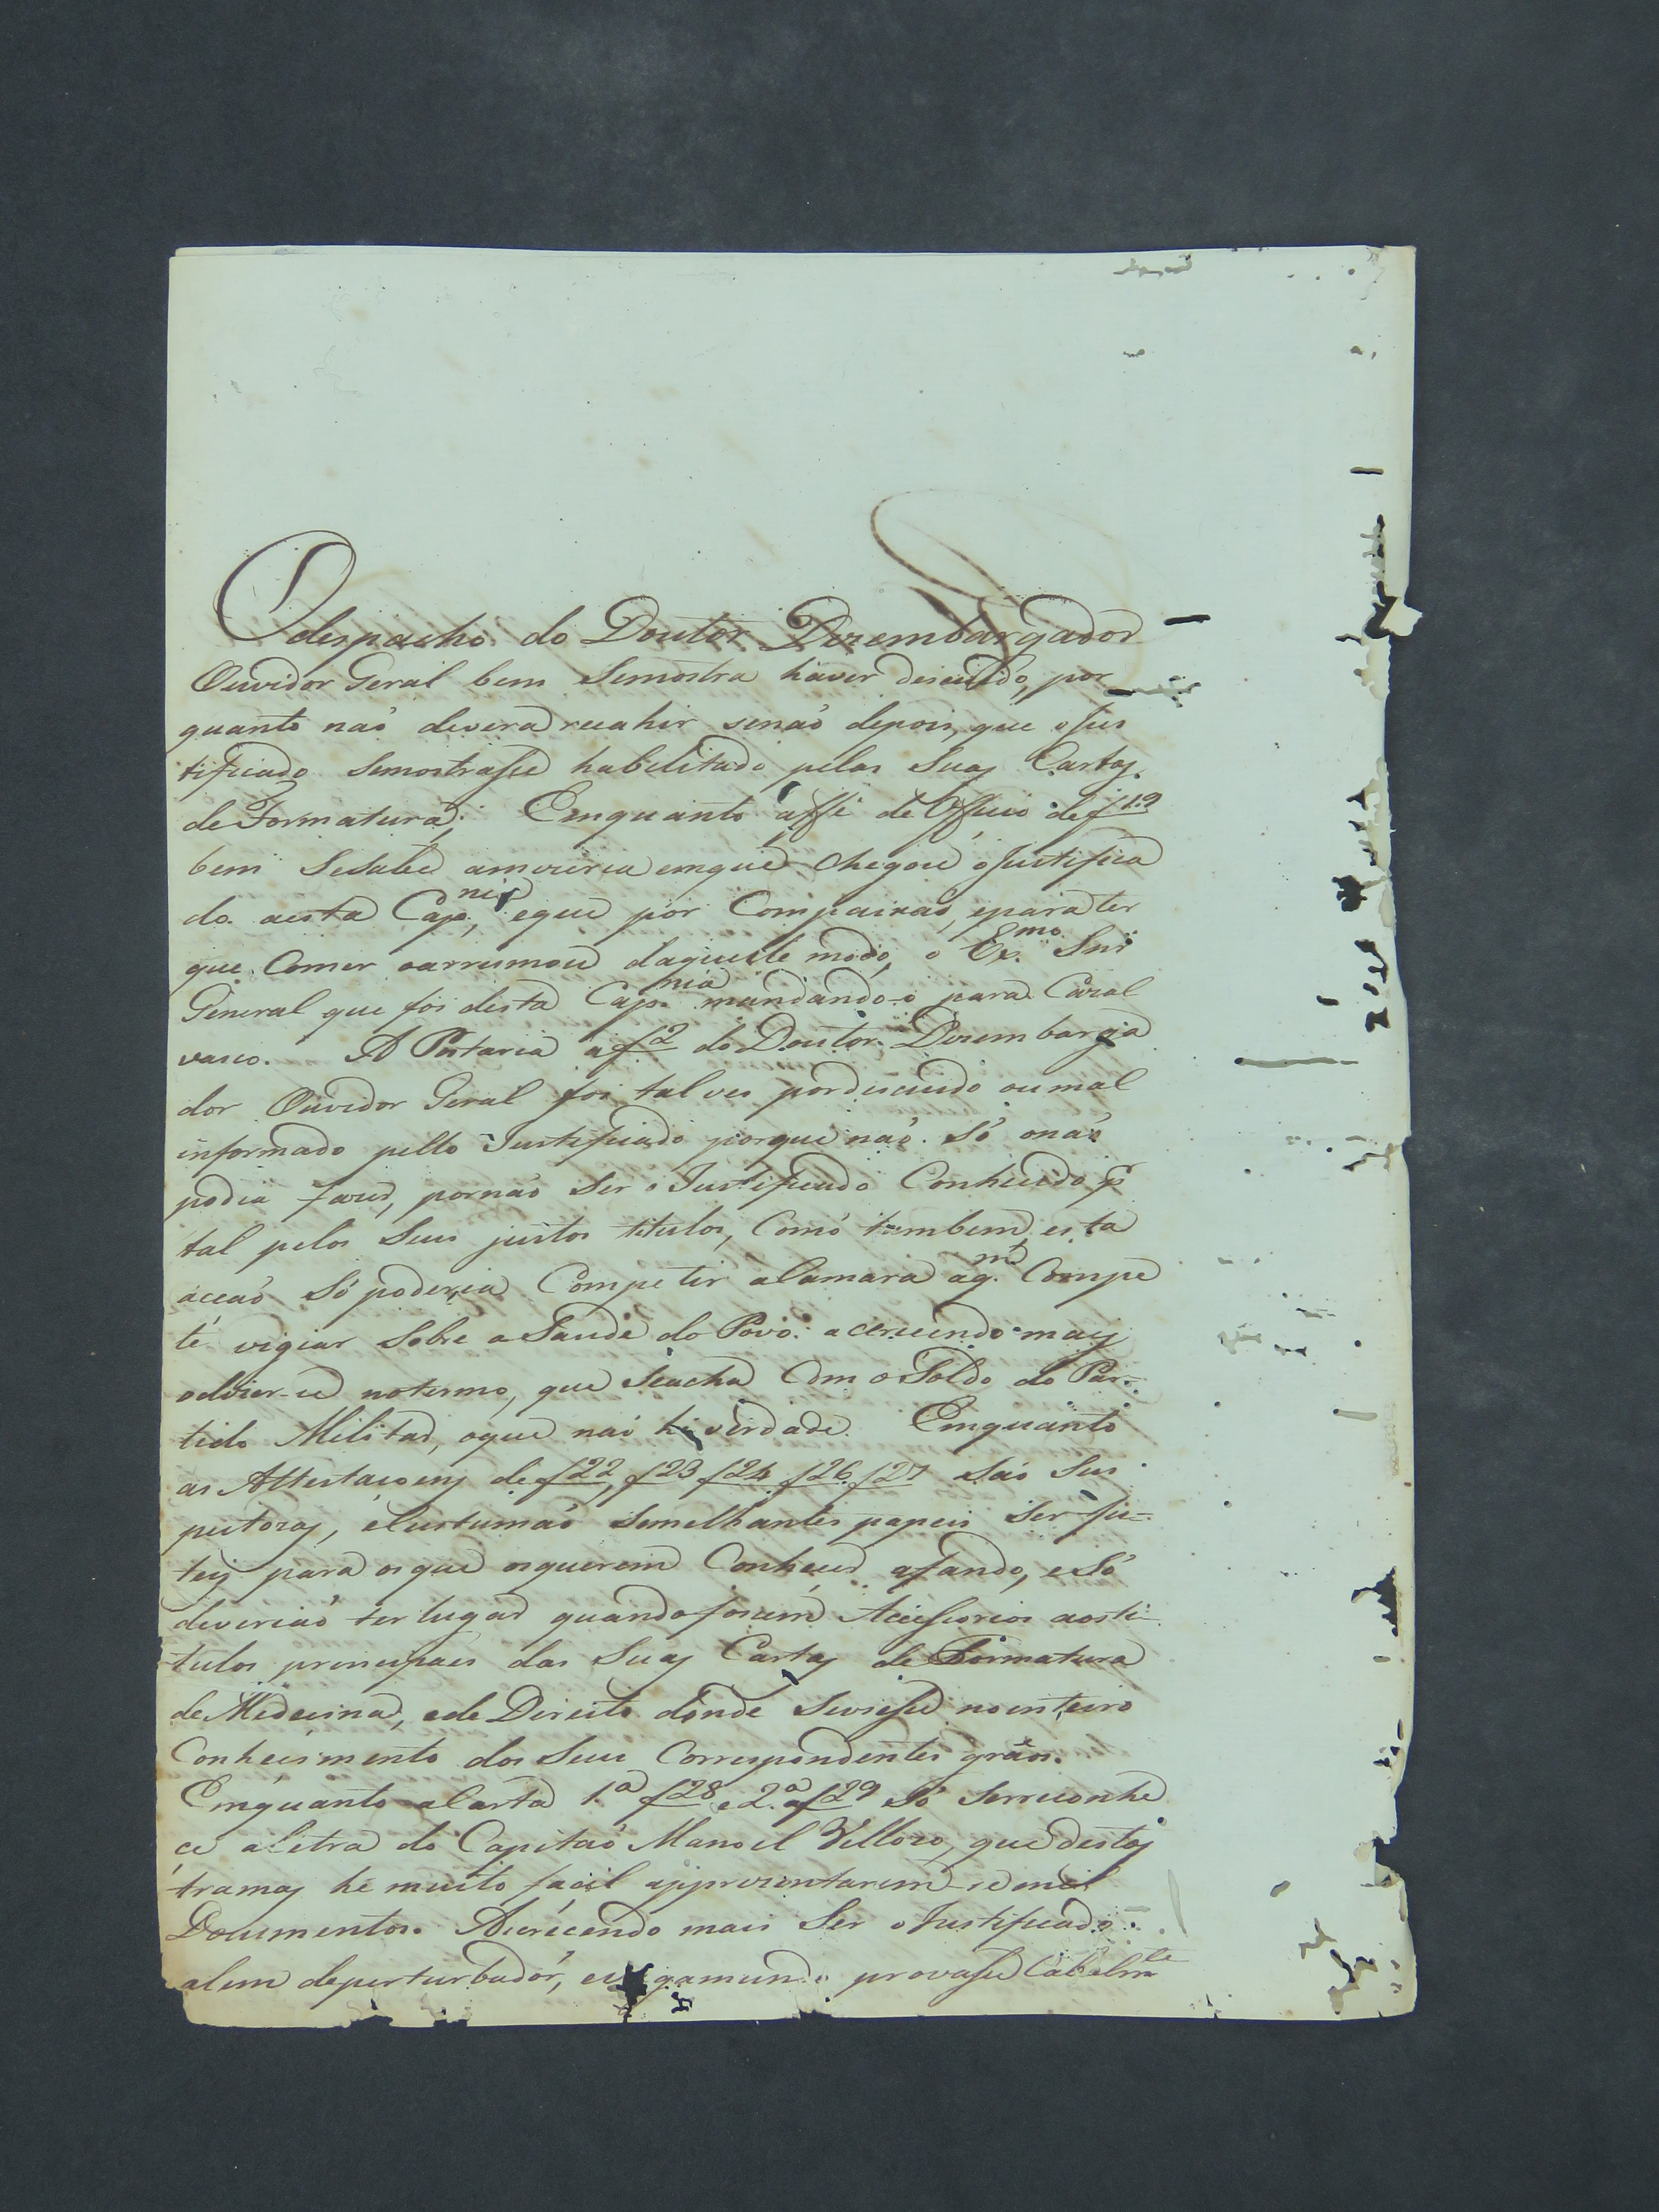 O despacho do Doutor Dezembargador
Ouvidor Geral bem Semostra haver descuido, por
quanto naó devera recahir senaó depois, que oJus
tificado Semostraſse habelitado pelas Suas Cartas
de Formatura; Emquanto afſe de Officio de f19
bem Sesabe amizeria emque Chegou oJustifica
do aesta Cap.nia, eque por Compaixaó, epara ter
que Comer oarrumou daquelle modo, o Ex.mo Snr
General que foi desta Cap.nia mandando-o para Cazal
vasco. A Portaria af2 do Doutor Dezembarga
dor Ouvidor Geral foi talves pordescuido oumal
informado pello Justificado porque naó Só onaó
podia fazer, pornaó Ser o Justificado Conhecido p
tal pelos Seus justos titulos, Comó tambem, esta
acçaó Só poderia Competir aCamara aq.m Compe
te vigiar Sobre a Saude do Povo: acrecendo mais
odizer-se notermo, que Seacha Com o Soldo do Par-
tido Militar, oque naó he verdade. Emquanto
as Attestaçoens de f22, f23 f24 f26 f27 Saó Sus
peitozas, eCustumaó Semelhantes papeis Ser fu-
teis para osque osquerem Conhecer afundo, eSó
deveriaó ter lugar quando fosem Acceſsorios aosti-
tulos principaes das Suas Cartas de Formatura
de Medecina, ede Direito donde Sevieſse noInteiro
Conhecimento dos Seus Correspondentes gráos.
Emquanto aCarta 1.a f28 e 2.a af29 Só Serreconhe
ce aLetra do Capitaó Manoel Vellozo, que destas
tramas he muito facil apprezentarem-se mil
Documentos. Acrecendo mais Ser oJustificado
alem deperturbador, evagamundo provaſse Cabalm.te